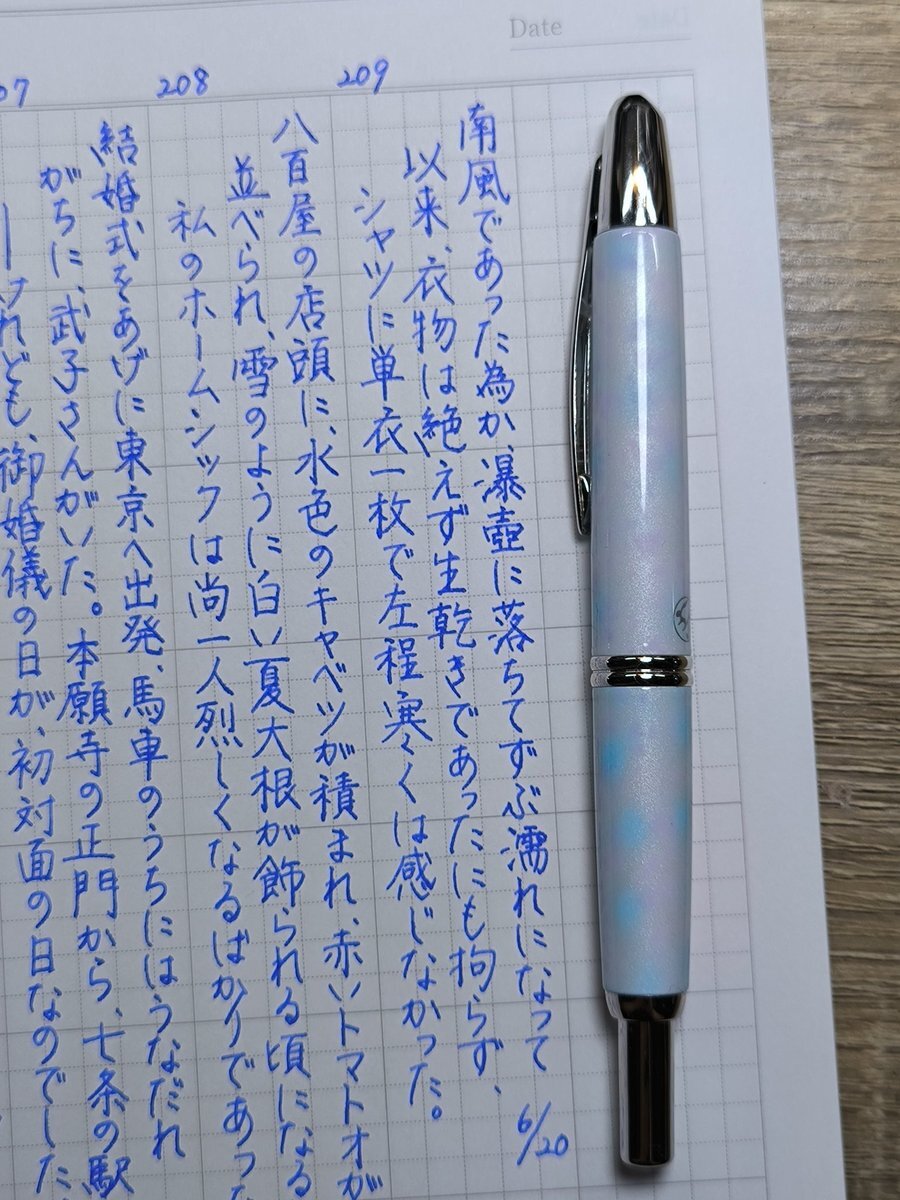 Date
209
南風であった為か、瀑壺に落ちてずぶ濡れになって
以来、衣物は絶えず生乾きであったにも拘らず、
シャツに単衣一枚で左程寒くは感じなかった。
6/20
208
八百屋の店頭に、水色のキャベツが積まれ、赤いトマトオが
並べられ、雪のように白い夏大根が飾られる頃になる
私のホームシックは尚一人烈しくなるばかりであった
07
結婚式をあげに東京へ出発、馬車のうちにはうなだれ
がちに、武子さんがいた。本願寺の正門から、七条の駅
―けれども、御婚儀の日が、初対面の日なのでした